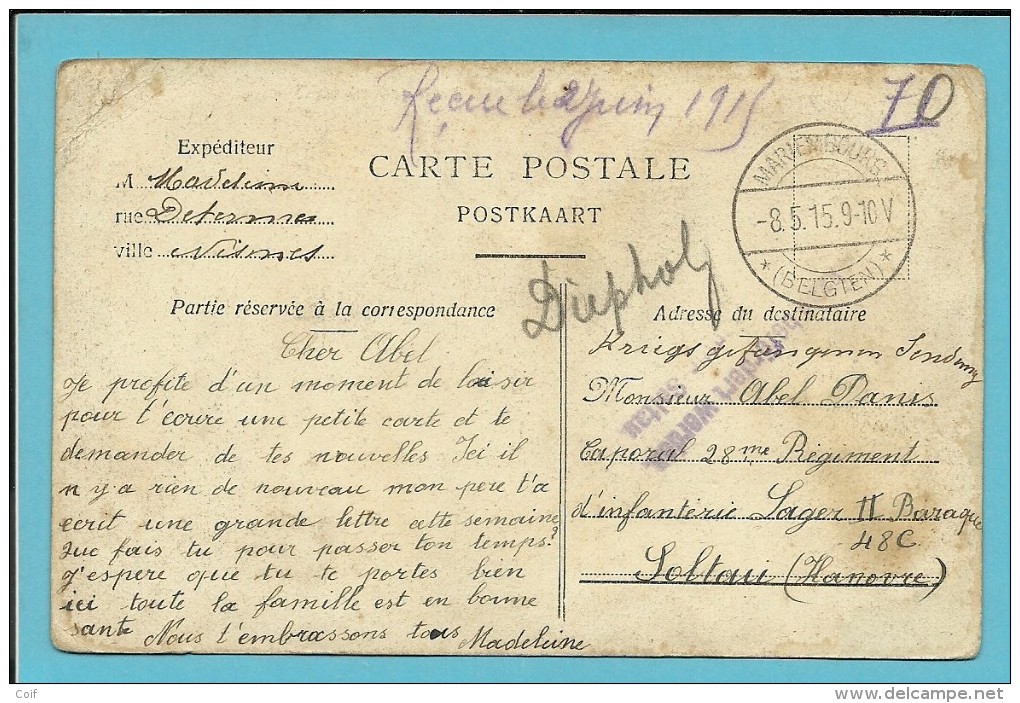 Réçu le 2 Juin 1915
70
Expéditeur
M Madeleine
rue
ville Nismes
CARTE POSTALE
POSTKAART
MARIEMBOURG
-8.5.15.9-10V
* (BELGIEN) *
Diepholz
Partie réservée à la correspondance
Adresse du destinataire
Cher Abel
Je profite d'un moment de loisir
pour t'écrire une petite carte et te
demander de tes nouvelles Ici il
n y a rien de nouveau mon pere t'a
ecrit une grande lettre cette semaine
Que fais tu pour passer ton temps?
J'espere que tu te portes bien
ici toute la famille est en bonne
sante Nous t'embrassons tous Madeleine
Kriegsgefangenen Sendung
Monsieur Abel Danis
Caporal 28me Régiment
d'infanterie Lager II Baraque
48C
Soltau (Hanovre)
werden
Coif
delcampe.net